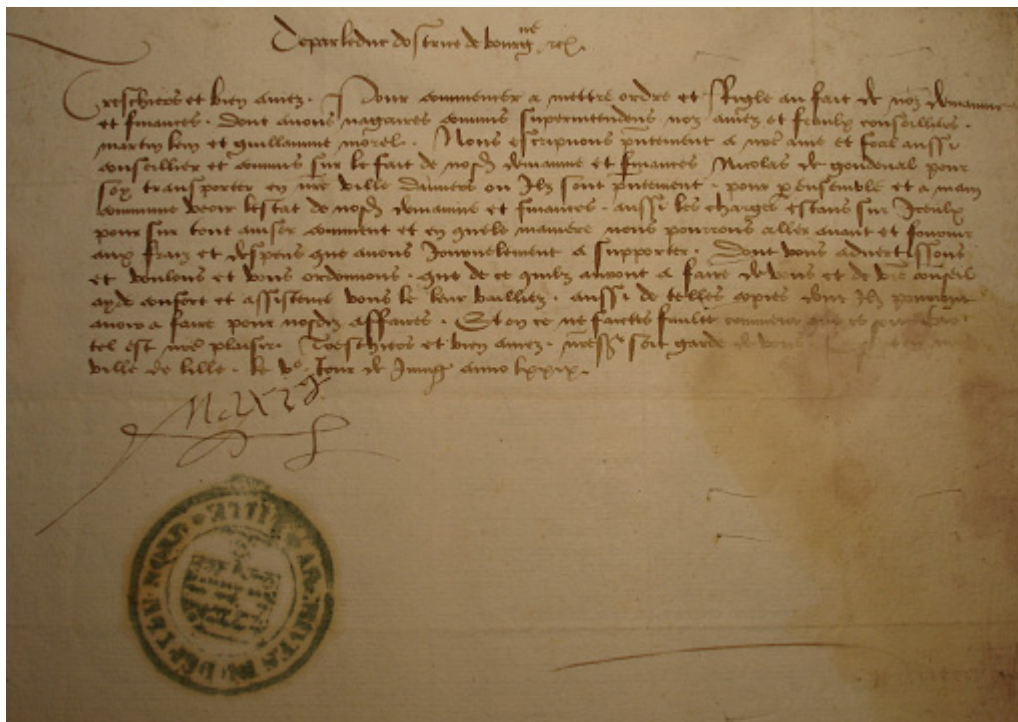 De par le duc dostrice de bourg^ne etc.
Treschiers et bien amez. Pour commencer a mettre ordre et Rigle au fait de noz demainne
et finances. dont auons nagaires commis superintendens noz amez et feaulx conseilliers.
martin lem et guillamme morel. Nous escripuons p̃ntement a nr̃e ame et feal aussi
conseillier et commis sur le fait de nosd demainne et finances Nicolas de gondeual pour
soy transporter en nr̃e ville danuers ou Ilz sont p̃ntement. pour ensemble et a main
commune veoir lestat de nosd demainne et finances. aussi les charges estans sur Iceulx
pour sur tout auiser comment et en quele maniere nous pourrons aller auant et fournir
aux fraiz et despens que auons Journelement a supporter. Dont vous aduertissons
et voulons et vous ordonnons. que de ce quilz auront a faire de vous et de vr̃e conseil
ayde confort et assistence vous le leur bailliez. aussi de telles copies dont Ilz pourront
auoir a faire pour nosd affaires. Et en ce ne faictes faulte comment que ce soit Car
tel est nr̃e plaisir. Treschiers et bien amez. nr̃e s^r soit garde de vous
ville de lille. le v^e Jour de Juing anno lxxix.
Maxi
ARCHIVES DU DEPT DU NORD LILLE